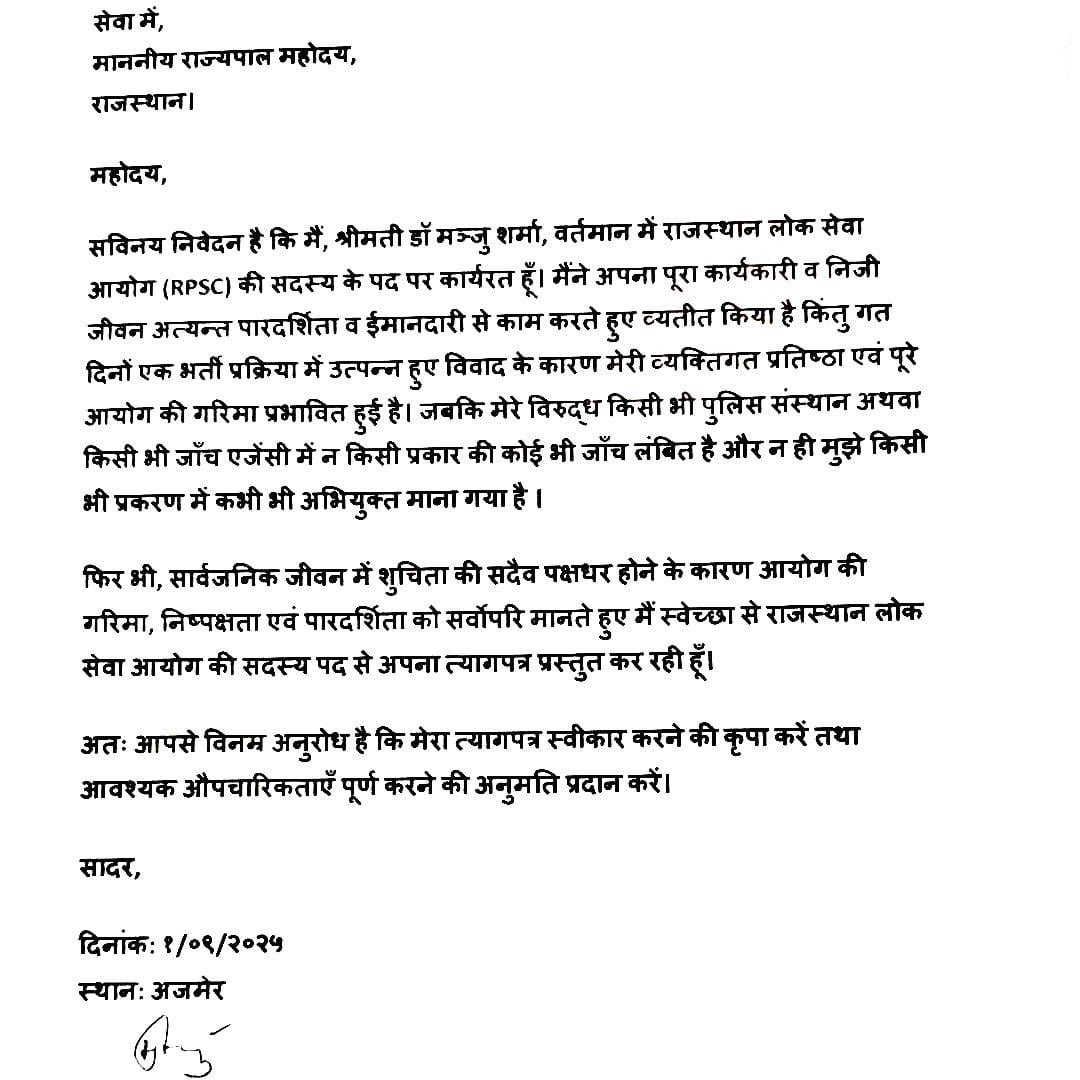 सेवा में,
माननीय राज्यपाल महोदय,
राजस्थान।
महोदय,
सविनय निवेदन है कि मैं, श्रीमती डॉ मञ्जु शर्मा, वर्तमान में राजस्थान लोक सेवा
आयोग (RPSC) की सदस्य के पद पर कार्यरत हूँ। मैंने अपना पूरा कार्यकारी व निजी
जीवन अत्यन्त पारदर्शिता व ईमानदारी से काम करते हुए व्यतीत किया है किंतु गत
दिनों एक भर्ती प्रक्रिया में उत्पन्न हुए विवाद के कारण मेरी व्यक्तिगत प्रतिष्ठा एवं पूरे
आयोग की गरिमा प्रभावित हुई है। जबकि मेरे विरुद्ध किसी भी पुलिस संस्थान अथवा
किसी भी जाँच एजेंसी में न किसी प्रकार की कोई भी जाँच लंबित है और न ही मुझे किसी
भी प्रकरण में कभी भी अभियुक्त माना गया है ।
फिर भी, सार्वजनिक जीवन में शुचिता की सदैव पक्षधर होने के कारण आयोग की
गरिमा, निष्पक्षता एवं पारदर्शिता को सर्वोपरि मानते हुए मैं स्वेच्छा से राजस्थान लोक
सेवा आयोग की सदस्य पद से अपना त्यागपत्र प्रस्तुत कर रही हूँ।
अतः आपसे विनम अनुरोध है कि मेरा त्यागपत्र स्वीकार करने की कृपा करें तथा
आवश्यक औपचारिकताएँ पूर्ण करने की अनुमति प्रदान करें।
सादर,
दिनांक: १/०९/२०२५
स्थान: अजमेर